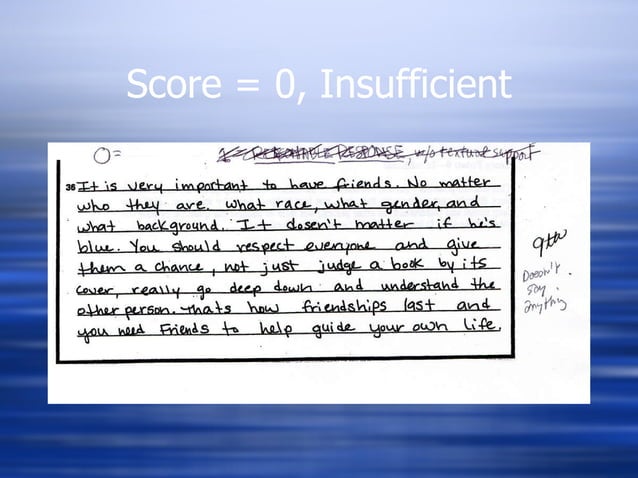 Score = 0, Insufficient
O= 1 = REASONABLE RESPONSE, w/o textual support
36 It is very important to have friends. No matter
who they are. what race, what gender, and
what background. It dosen't matter if he's
blue. You should respect everyone and give
them a chance, not just judge a book by its
cover, really go deep down and understand the
other person. Thats how friendships last and
you need Friends to help guide your own life.
9th
Doesn't
say
anything